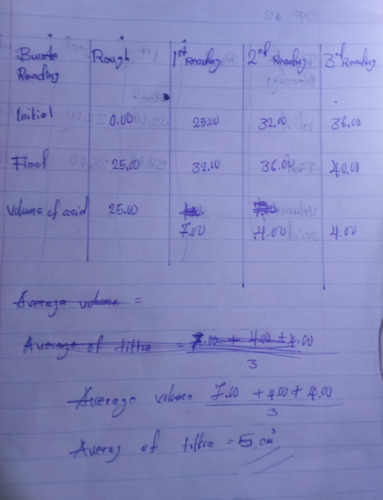 Burate Reading | Rough | 1st Reading | 2nd Reading | 3rd Reading
Initial | 0.00 | 25.00 | 32.00 | 36.00
Final | 25.00 | 32.00 | 36.00 | 40.00
Volume of acid | 25.00 | 7.00 | 4.00 | 4.00
Average volume =
Average of tittra = 7.00 + 4.00 + 4.00
3
Average volume 7.00 + 4.00 + 4.00
3
Averag of tittra = 5 cm³